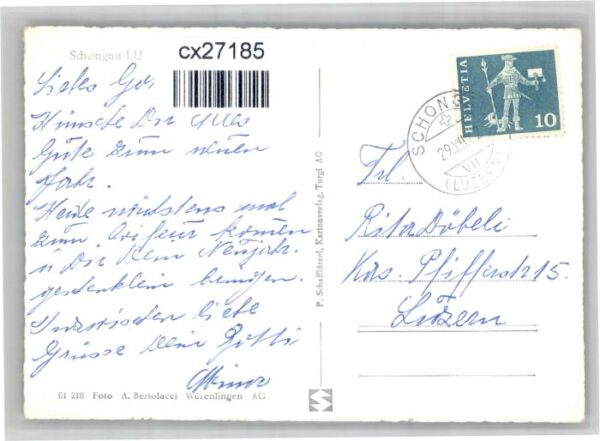 Schongau LU
cx27185
Liebes
Wünsche Dir alles
Gute zum neuen
Jahr.
Werde nächstens mal
zum Coiffeur kommen
u Dir Dein Neujahr-
geschenklein bringen.
Inzwischen liebe
Grüsse Dein Götti
61 218 Foto A. Bertolacci Würenlingen AG
P. Schafflützel, Kartenverlag, Turgi AG
HELVETIA
10
SCHONG
29.XII
(LUZERN)
Frl.
Rita Döbeli
Kas. Pfifferstr 15.
Luzern